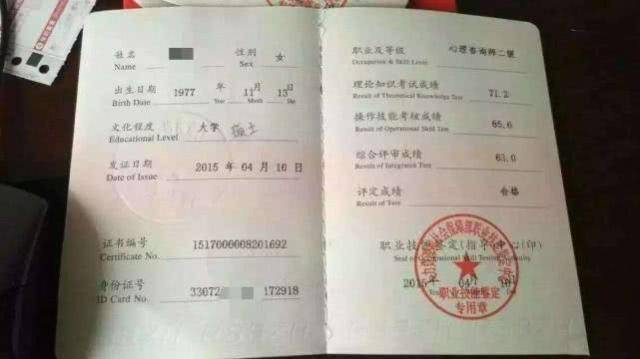 姓名 性别 女
Name Sex
出生日期 1977 年 11 月 13 日
Birth Date Year Month
文化程度 大学 硕士
Educational Level
发证日期 2015 年 04 月 16 日
Date of Issue
证书编号 1517000008201692
Certificate No.
身份证号 33072 172918
ID Card No.
职业及等级 心理咨询师二级
Occupation & Skill Level
理论知识考试成绩 71.2
Result of Theoretical Knowledge Test
操作技能考核成绩 65.6
Result of Operational Skill Test
综合评审成绩 63.0
Result of Integrated Test
评定成绩 合格
Result of Tests
职业技能鉴定(指导)中心(印)
Seal of Occupational Skill Testing Authority
2015 年 04 月 16
职业技能鉴定
专用章